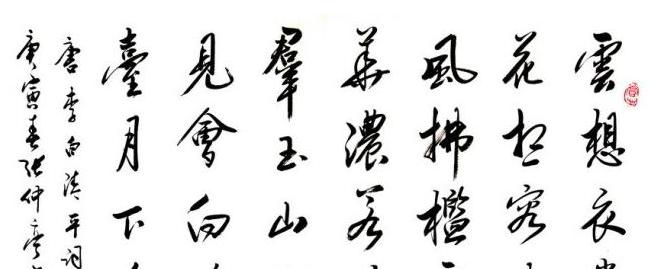 雲想衣
花想容
風拂檻
華濃若
羣玉山
見會向
臺月下
唐李白清平詞
庚寅春張仲亭